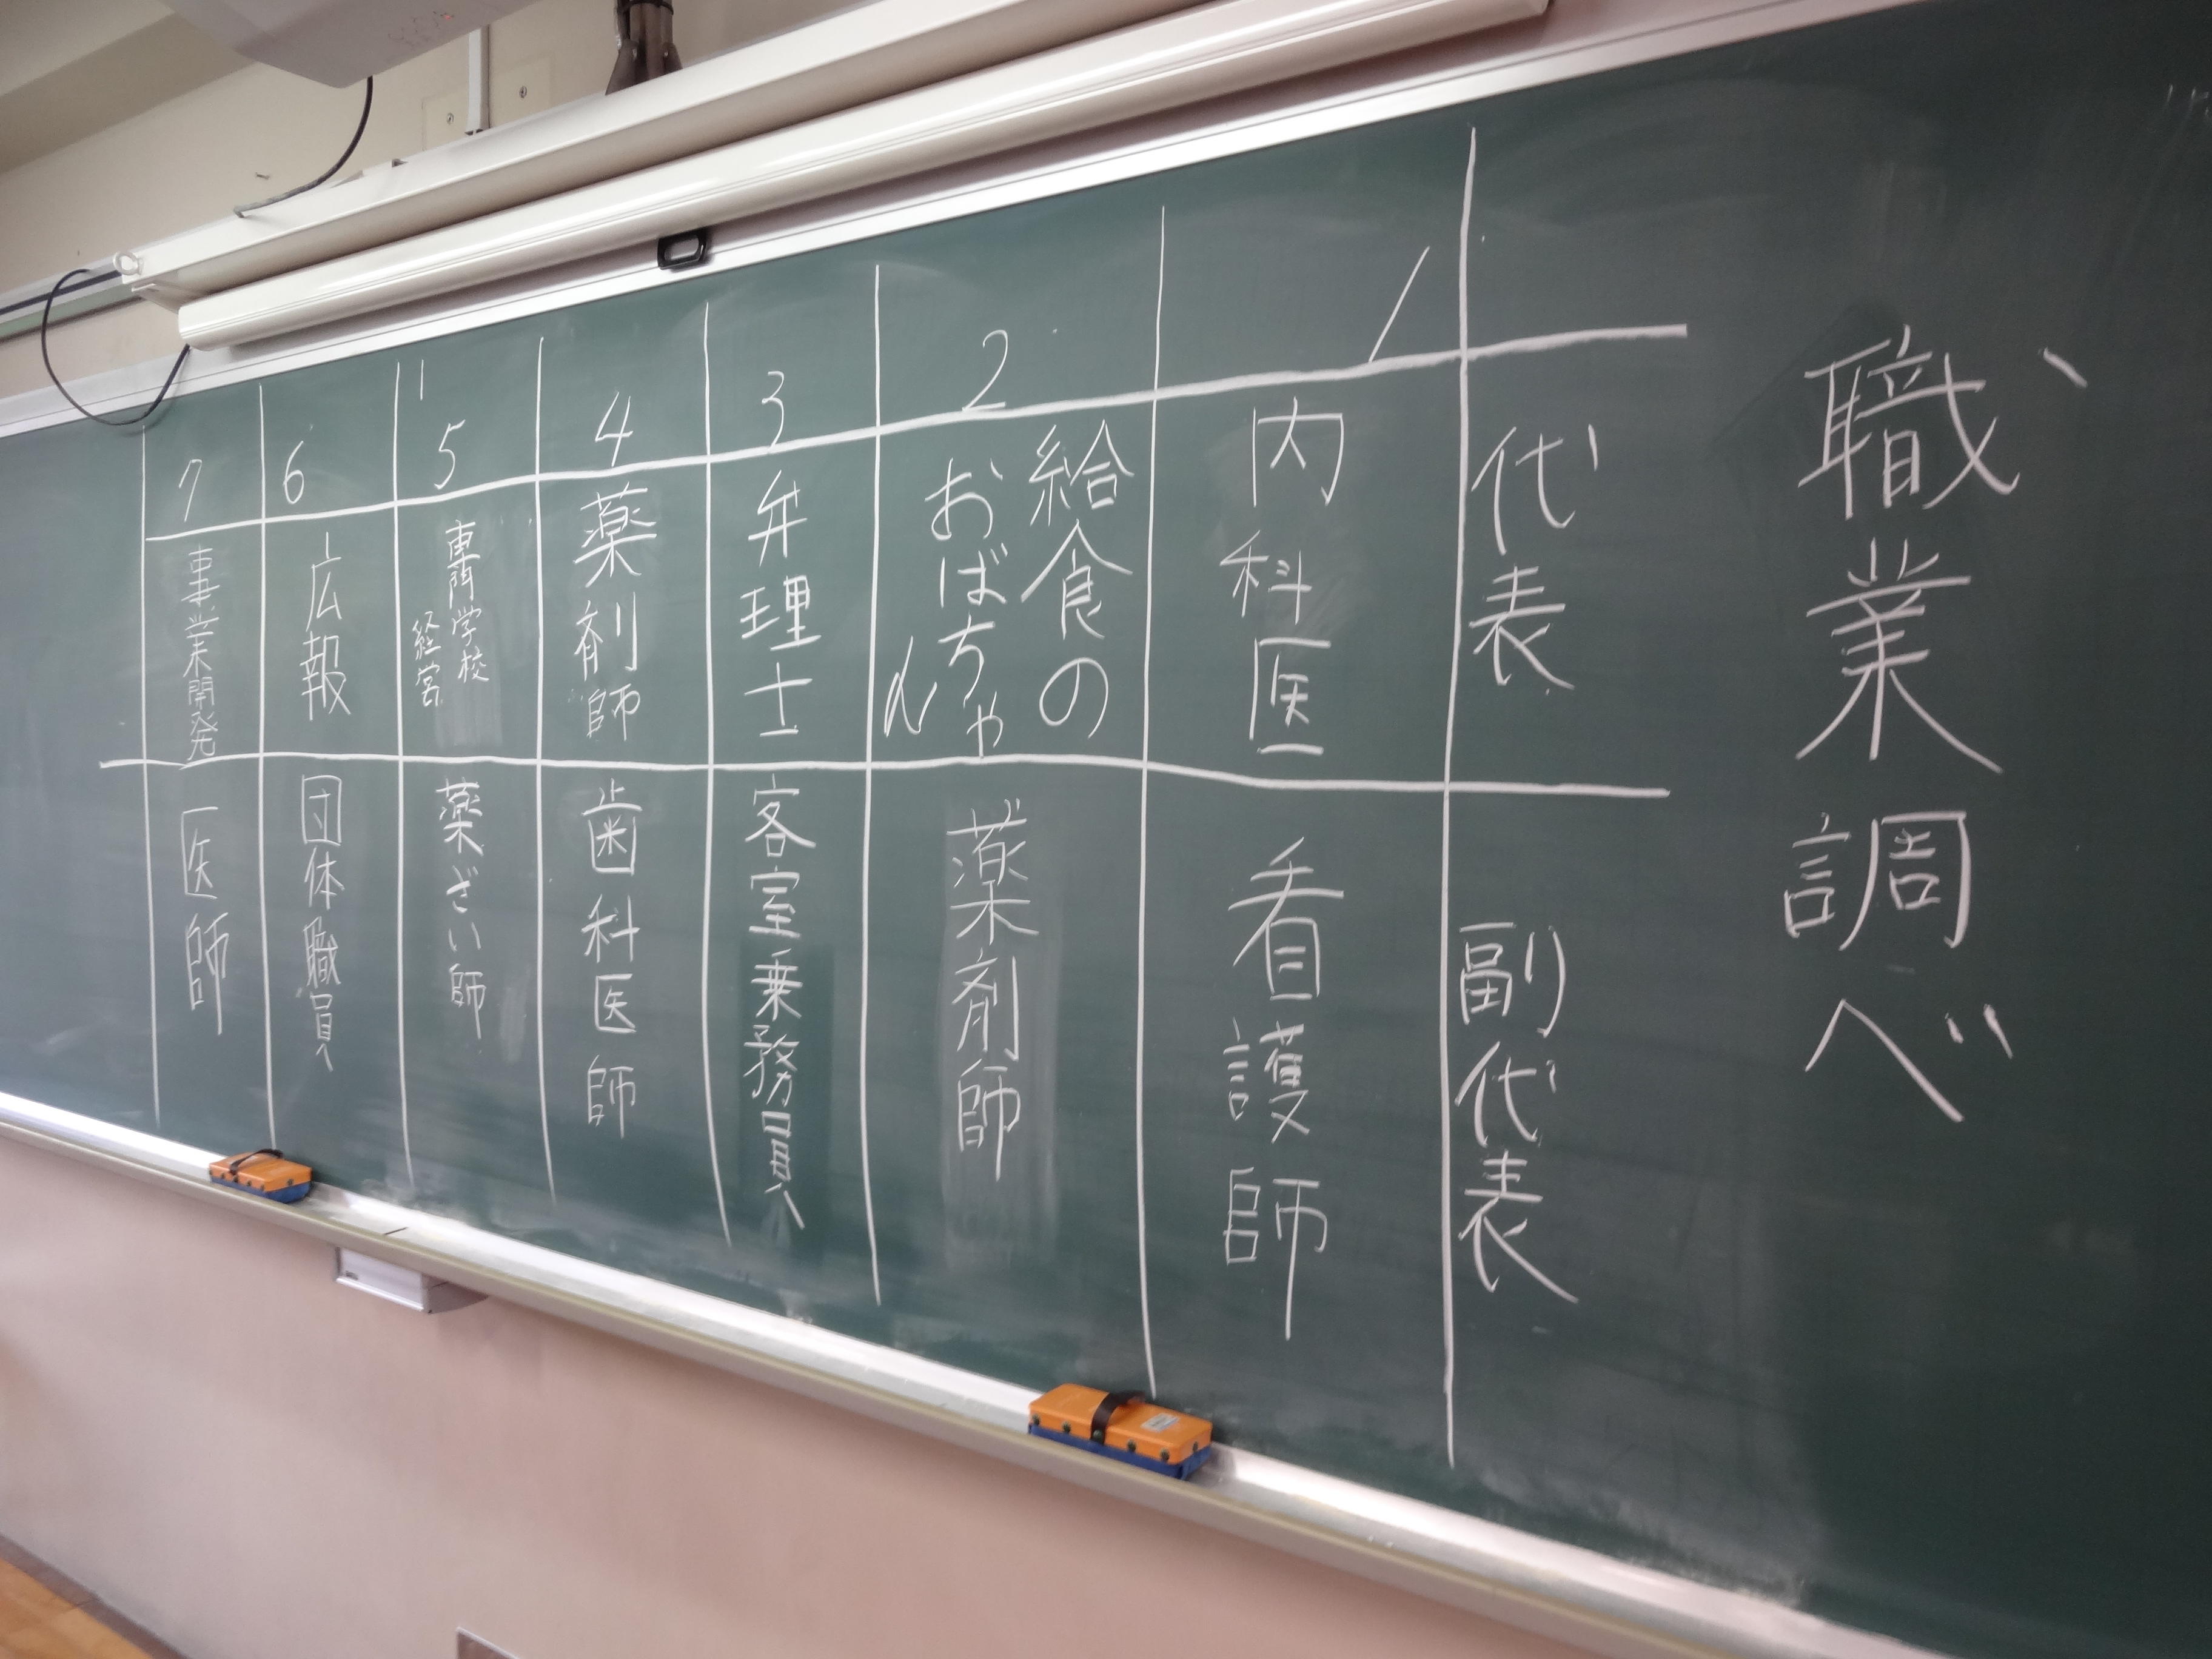 職業調べ
代表
副代表
1
内科医
看護師
2
給食の
おばちゃん
薬剤師
3
弁理士
客室乗務員
4
薬剤師
歯科医師
5
専門学校
経営
薬ざい師
6
広報
団体職員
7
事業開発
医師